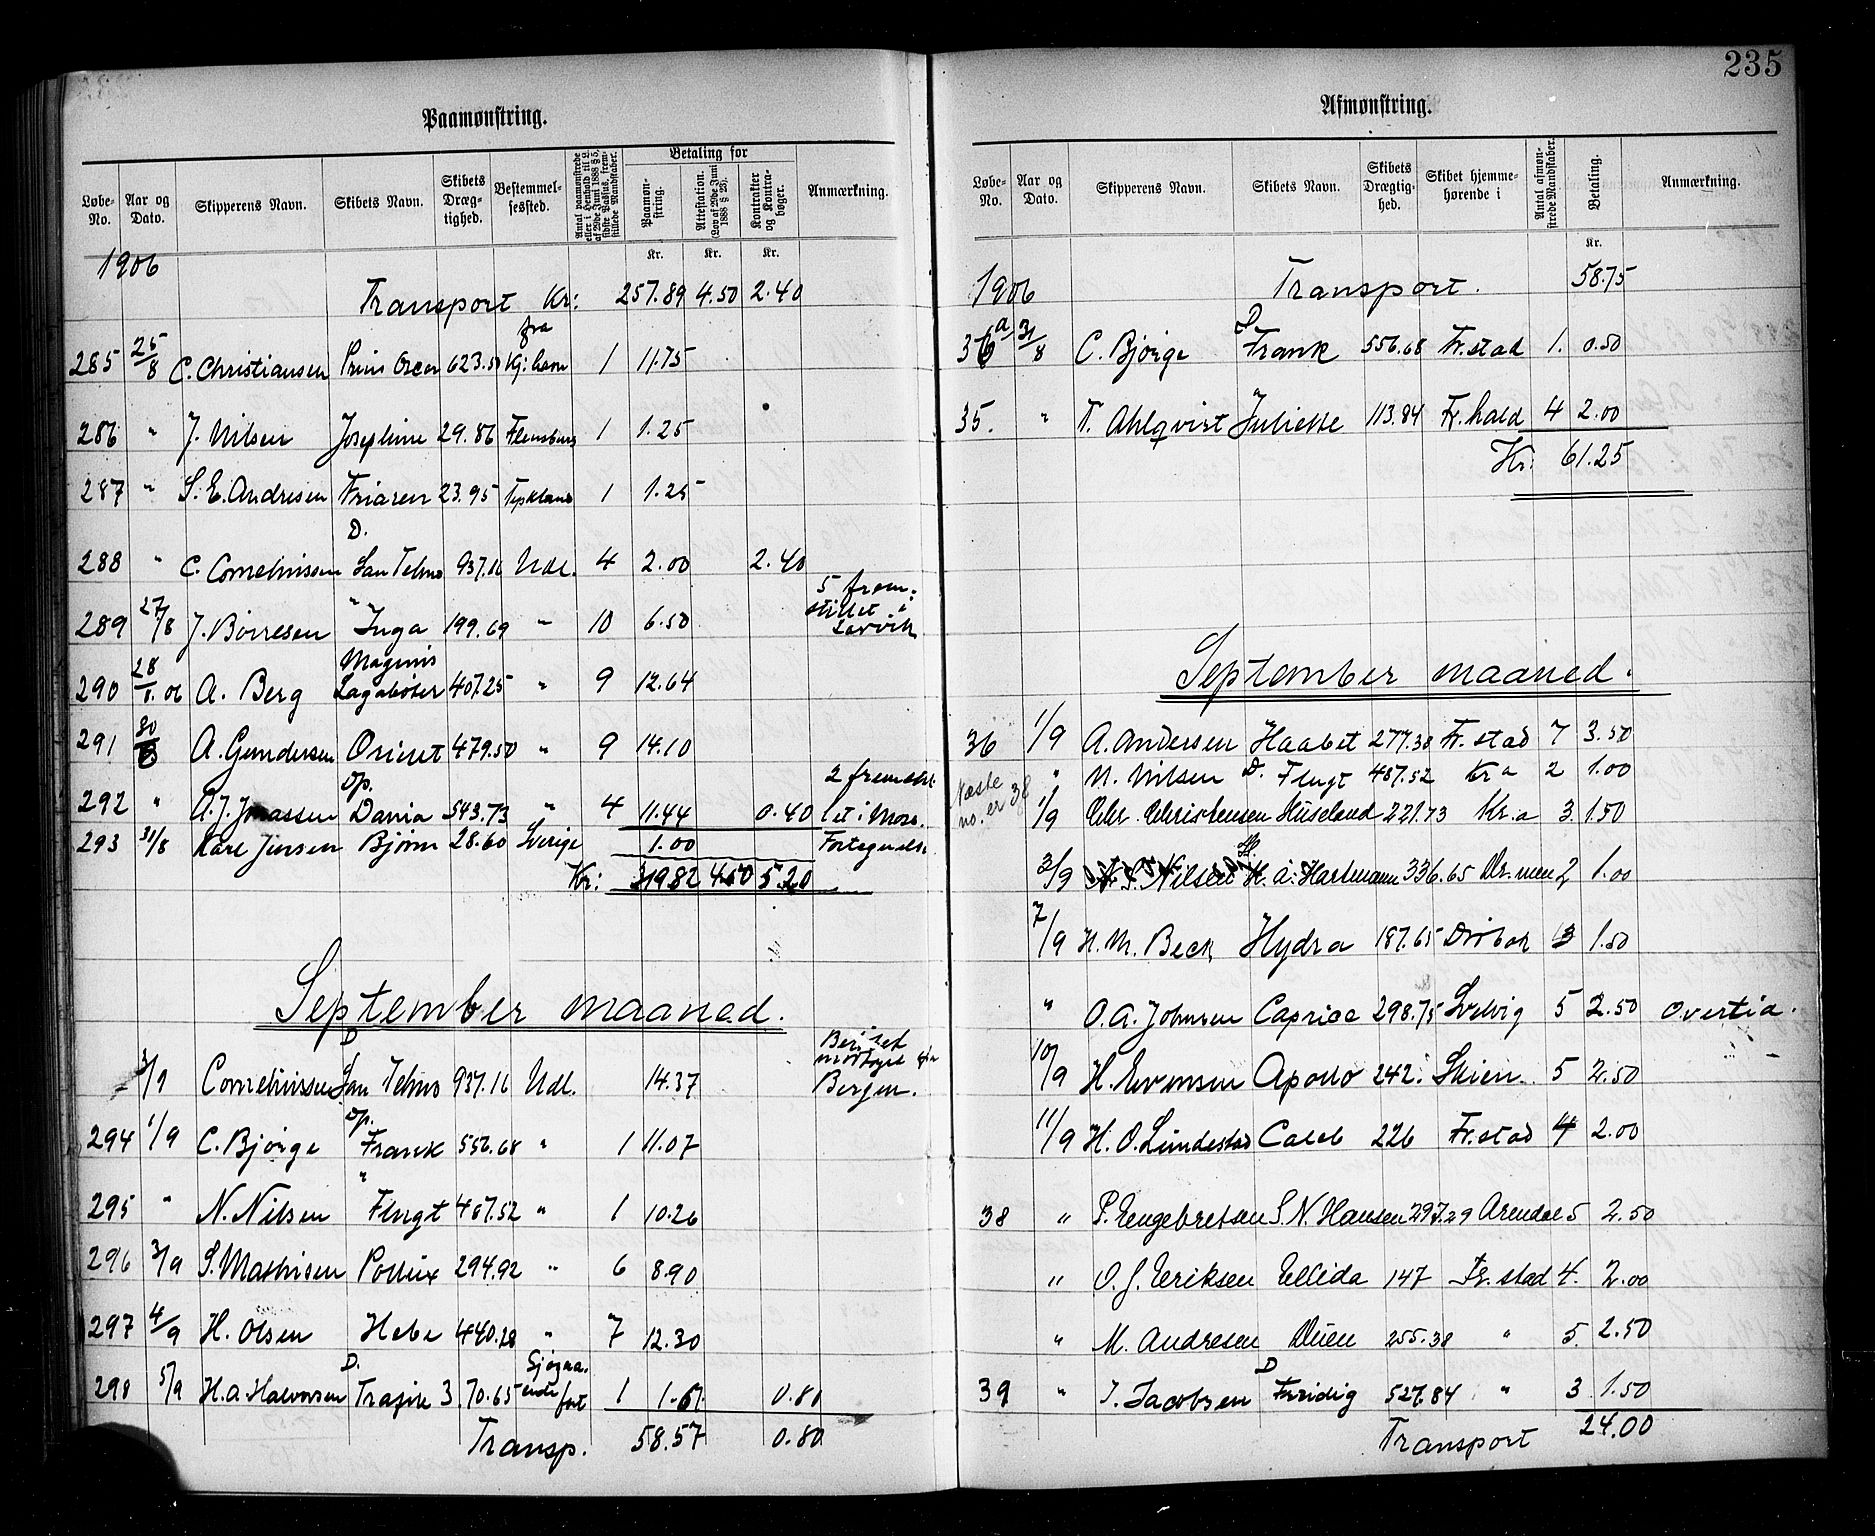 235
Paamønstring.
Løbe-No. | Aar og Dato. | Skipperens Navn. | Skibets Navn. | Skibets Dræg-tighed. | Bestemmel-sessted. | Antal paamønstrede eller i Henhold til L. af 29de Juni 1888 § 5, sidste Passus, frem-stillede Mandskaber. | Betaling for | Paamøn-string. | Attestation. (Lov af 29de Juni 1888 § 23). | Kontrakter og Kontra-bøger. | Anmærkning.
Kr. Kr. Kr.
1906
Transport Kr: 257.89 4.50 2.40
285 25/8 C. Christiansen Prins Oscar 623.50 fra Kj:havn 1 11.75
286 " J. Nilsen Josephine 29.86 Flensburg 1 1.25
287 " S. E. Andresen Friaren 23.95 Tyskland 1 1.25
288 " C. Corneliussen D. San Telmo 937.16 Udl. 4 2.00 2.40
289 27/8 J. Børresen " Inga 199.69 " 10 6.50 5 frem-stillet i Larvik
290 28/8. 06 A. Berg Magnus Lagabøter 407.25 " 9 12.64
291 30/8 A. Gundersen Orient 479.50 " 9 14.10
292 " A. J. Jonassen Dp. Dania 543.73 " 4 11.44 0.40 2 fremstil-let i Moss.
293 31/8 Karl Jensen Bjørn 28.60 Sverige 1.00 Fortegnelse
Kr: 319.82 4.50 5.20
September maaned.
" 3/9 Corneliussen D San Telmo 937.16 Udl. 14.37 Bergen.
294 1/9 C. Bjørge Dp. Frank 556.68 " 1 11.07
295 " N. Nilsen " Flugt 467.52 " 1 10.26
296 3/9 S. Mathisen Pollux 294.92 " 6 8.90
297 4/9 H. Olsen Hebe 440.28 " 7 12.30
298 5/9 H. A. Halvorsen D. Trafik 3.70.65 Sjøgaa-ende fart 1 1.61 0.80
Transp. 58.57 0.80
Afmønstring.
Løbe-No. | Aar og Dato. | Skipperens Navn. | Skibets Navn. | Skibets Drægtig-hed. | Skibet hjemme-hørende i | Antal afmøn-strede Mandskaber. | Betaling. | Anmærkning.
Kr.
1906 Transport. 58.75
36a 31/8 C. Bjørge D Frank 556.68 Fr.stad 1. 0.50
35. " T. Ahlqvist Juliette 113.84 Fr.hald 4 2.00
Kr: 61.25
September maaned.
36 1/9 A. Andersen Haabet 277.38 Fr.stad 7 3.50
" N. Nilsen D. Flugt 467.52 Kr a 2 1.00
Næste no. er 38
1/9 Chr. Christensen Huseland 221.73 Kr.a 3 1.50
3/9 N. S. Nilsen H. A. Hartmann 336.65 Dr.men 2 1.00
7/9 H. M. Beck Hydra 187.65 Drøbak 3 1.50
" O. A. Johnsen Caprice 298.75 Svelvig 5 2.50 Overtid.
10/9 H. Evensen Apollo 242. Skien. 5 2.50
11/9 H. O. Lundestad Caleb 226 Fr.stad 4 2.00
38 " P. Engebretsen S. N. Hansen 297.29 Arendal 5 2.50
" O. J. Eriksen Ellida 147 Fr.stad 4. 2.00
" M. Andresen Duen 255.38 " 5. 2.50
39 " J. Jacobsen D Freidig 527.84 " 3 1.50
Transport 24.00